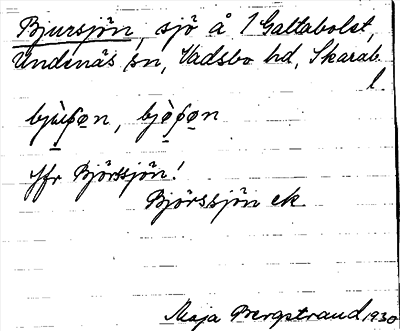 Bjursjön, sjö å 1 Galtabolet,
Undenäs sn, Vadsbo hd, Skarab.
l.
Jfr Björssjön!
Björssjön ek
Maja Bergstrand 1930